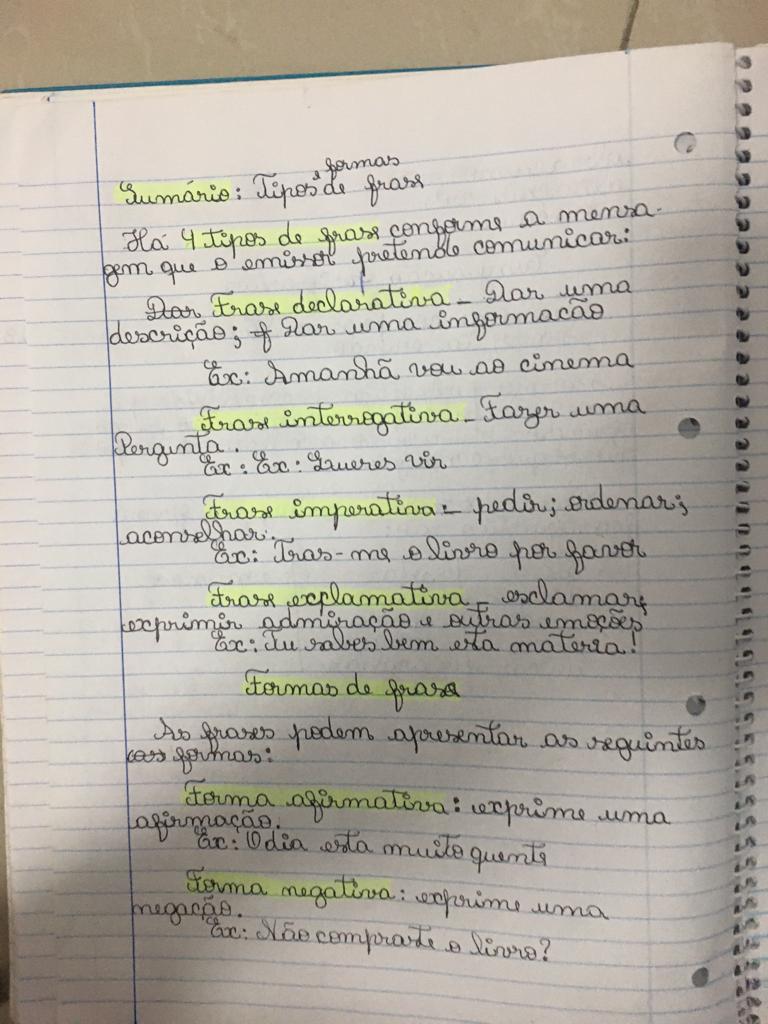 Sumário: Tipos e formas de frase
Há 4 tipos de frase conforme a mensa-
gem que o emissor pretende comunicar:
Dar Frase declarativa - Dar uma
descrição; Dar uma informacão
Ex: Amanhã vou ao cinema
Frase interrogativa - Fazer uma
Pergunta.
Ex: Ex: Queres vir
Frase imperativa - pedir; ordenar;
aconselhar.
Ex: Tras-me o livro por favor
Frase explamativa - esclamar;
exprimir admiração e outras emoções
Ex: Tu sabes bem esta materia!
Formas de frase
As frases podem apresentar as seguintes
formas:
Forma afirmativa: exprime uma
afirmação.
Ex: O dia esta muito quente
Forma negativa: exprime uma
negação.
Ex: Não compraste o livro?